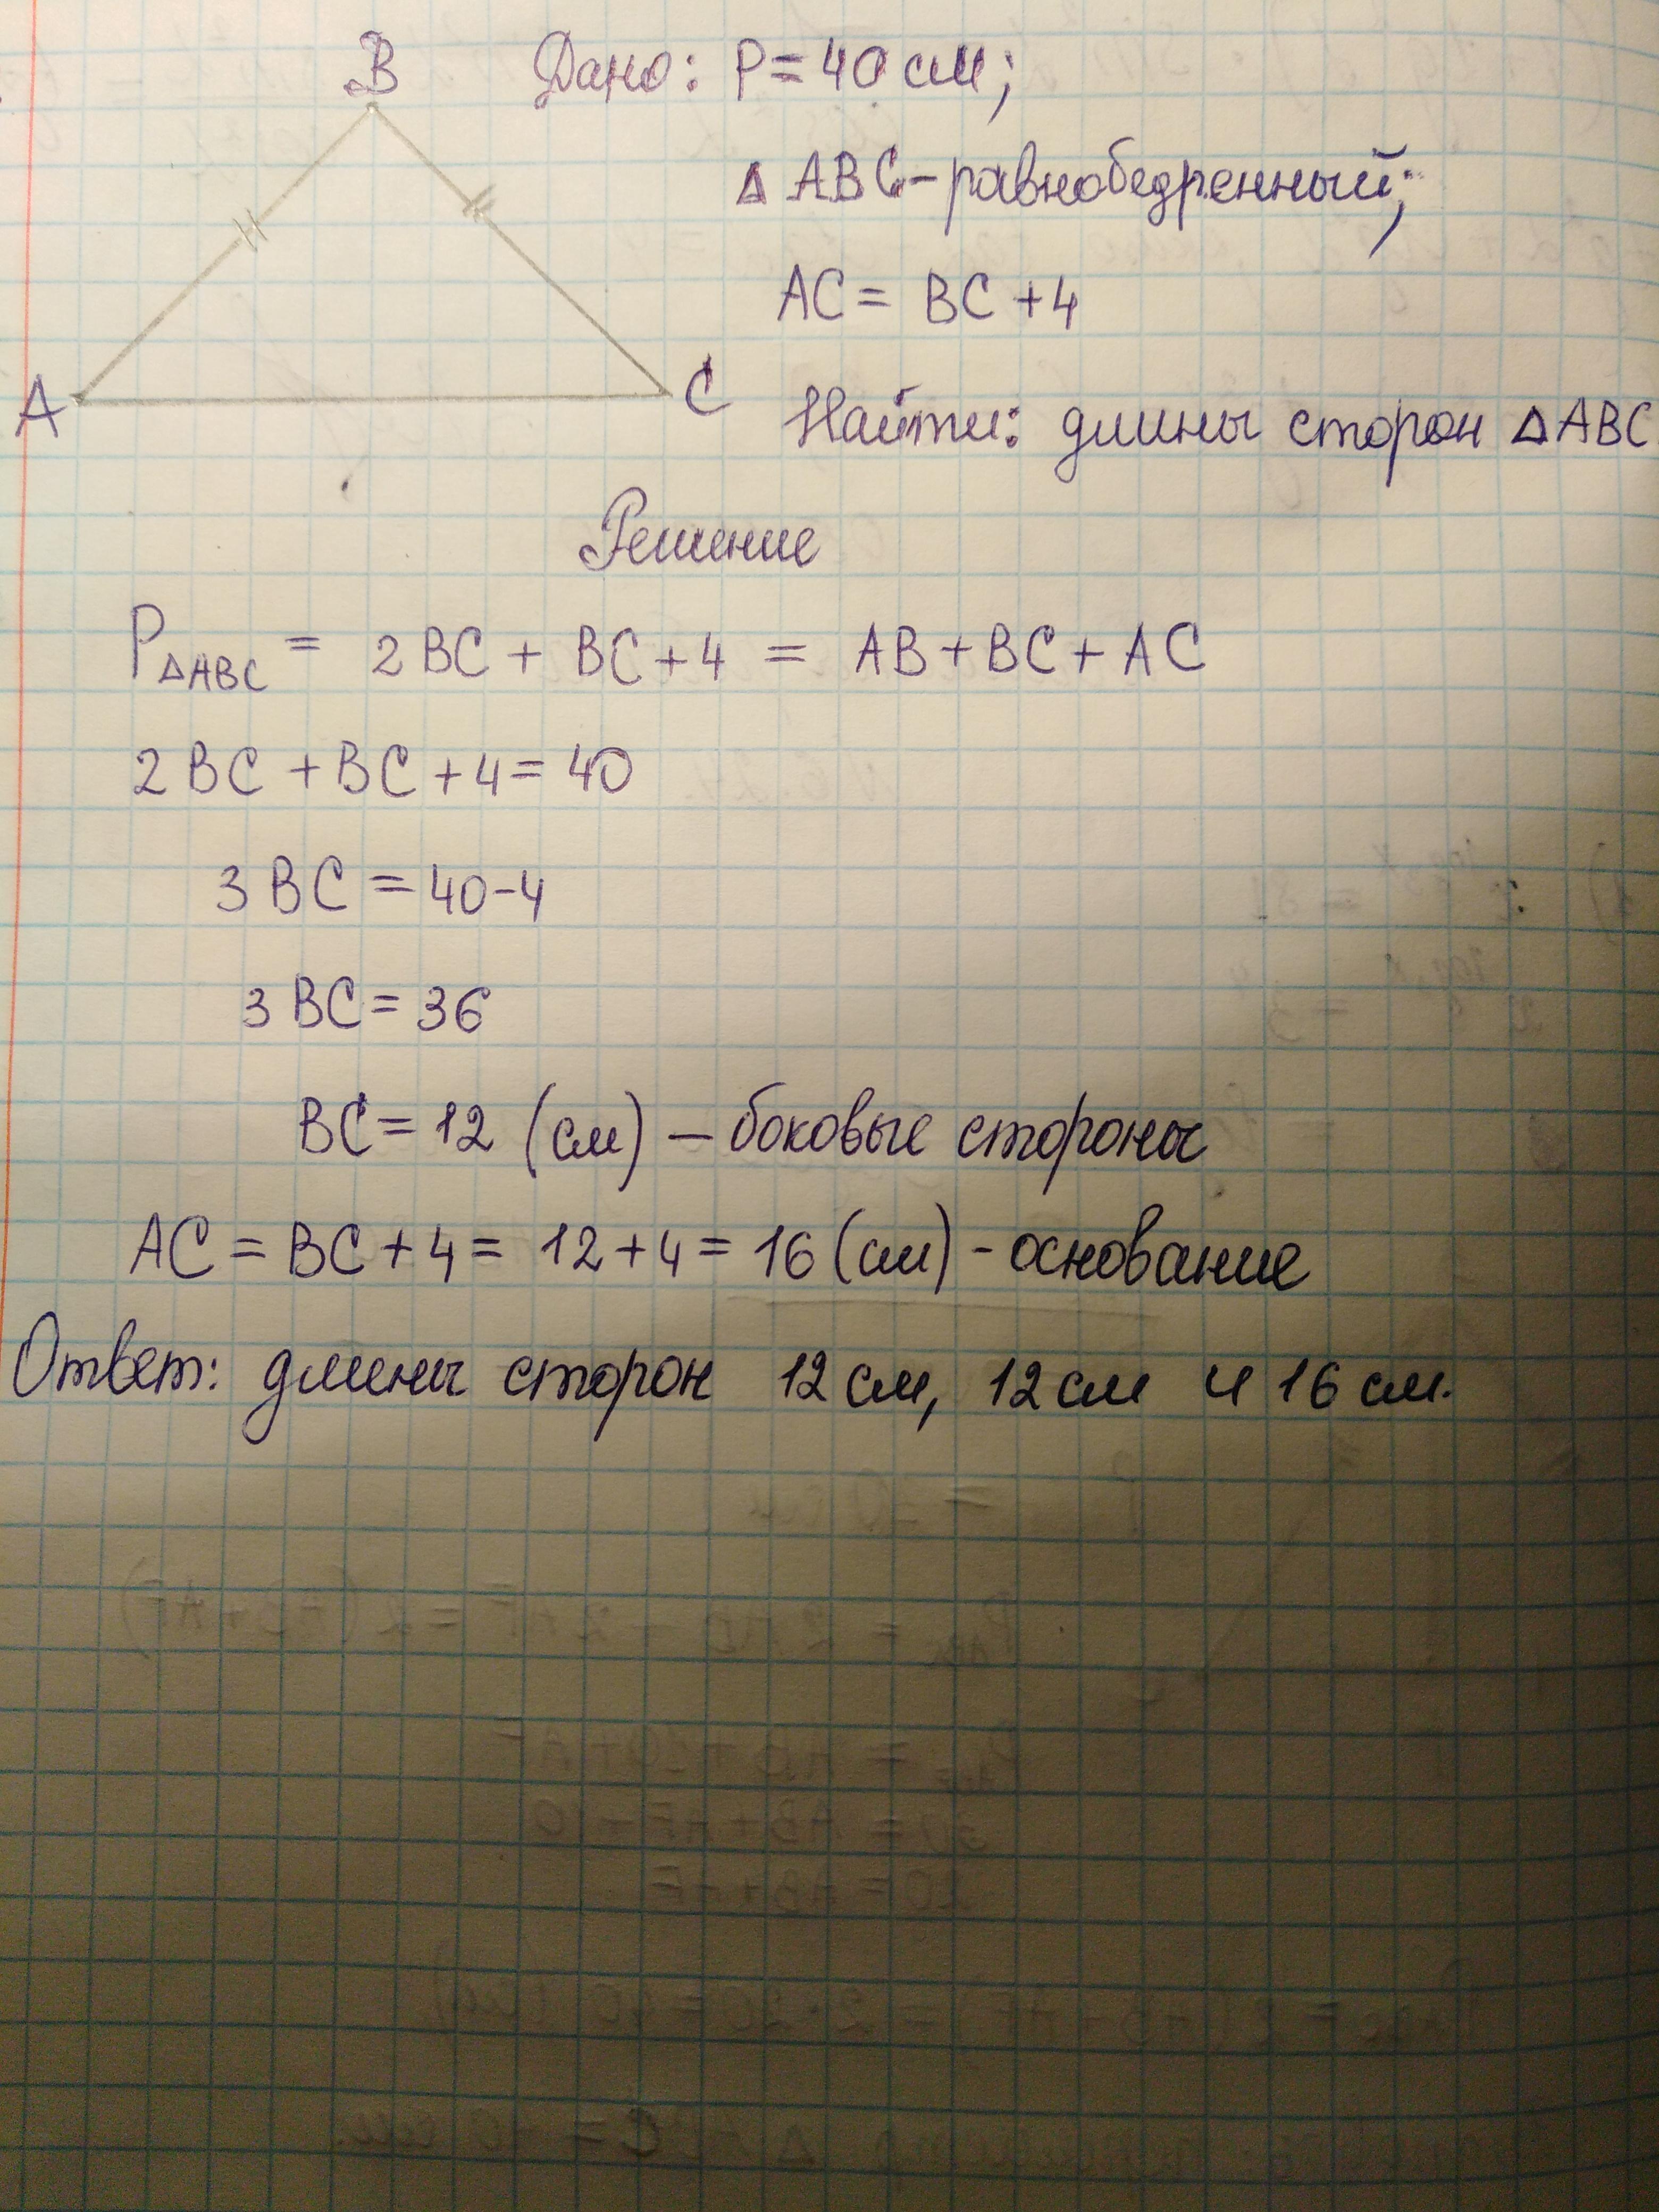 B
Дано: P = 40 см;
△ ABC - равнобедренный;
AC = BC + 4
A
C
Найти: длины сторон △ABC
Решение
P△ABC = 2BC + BC + 4 = AB + BC + AC
2BC + BC + 4 = 40
3BC = 40 - 4
3BC = 36
BC = 12 (см) — боковые стороны
AC = BC + 4 = 12 + 4 = 16 (см) - основание
Ответ: длины сторон 12 см, 12 см и 16 см.